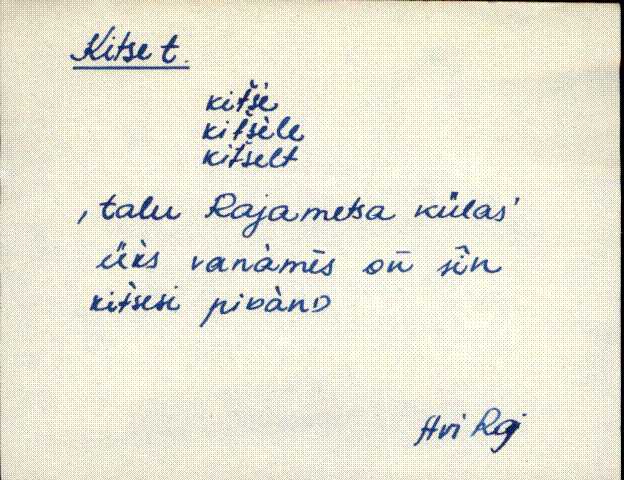 Kitse t.
kitśe
kitśele
kitśelt
‚talu Rajametsa külas’
üks vanàmēs oñ sīn
kitśesi pidànD
Avi Raj